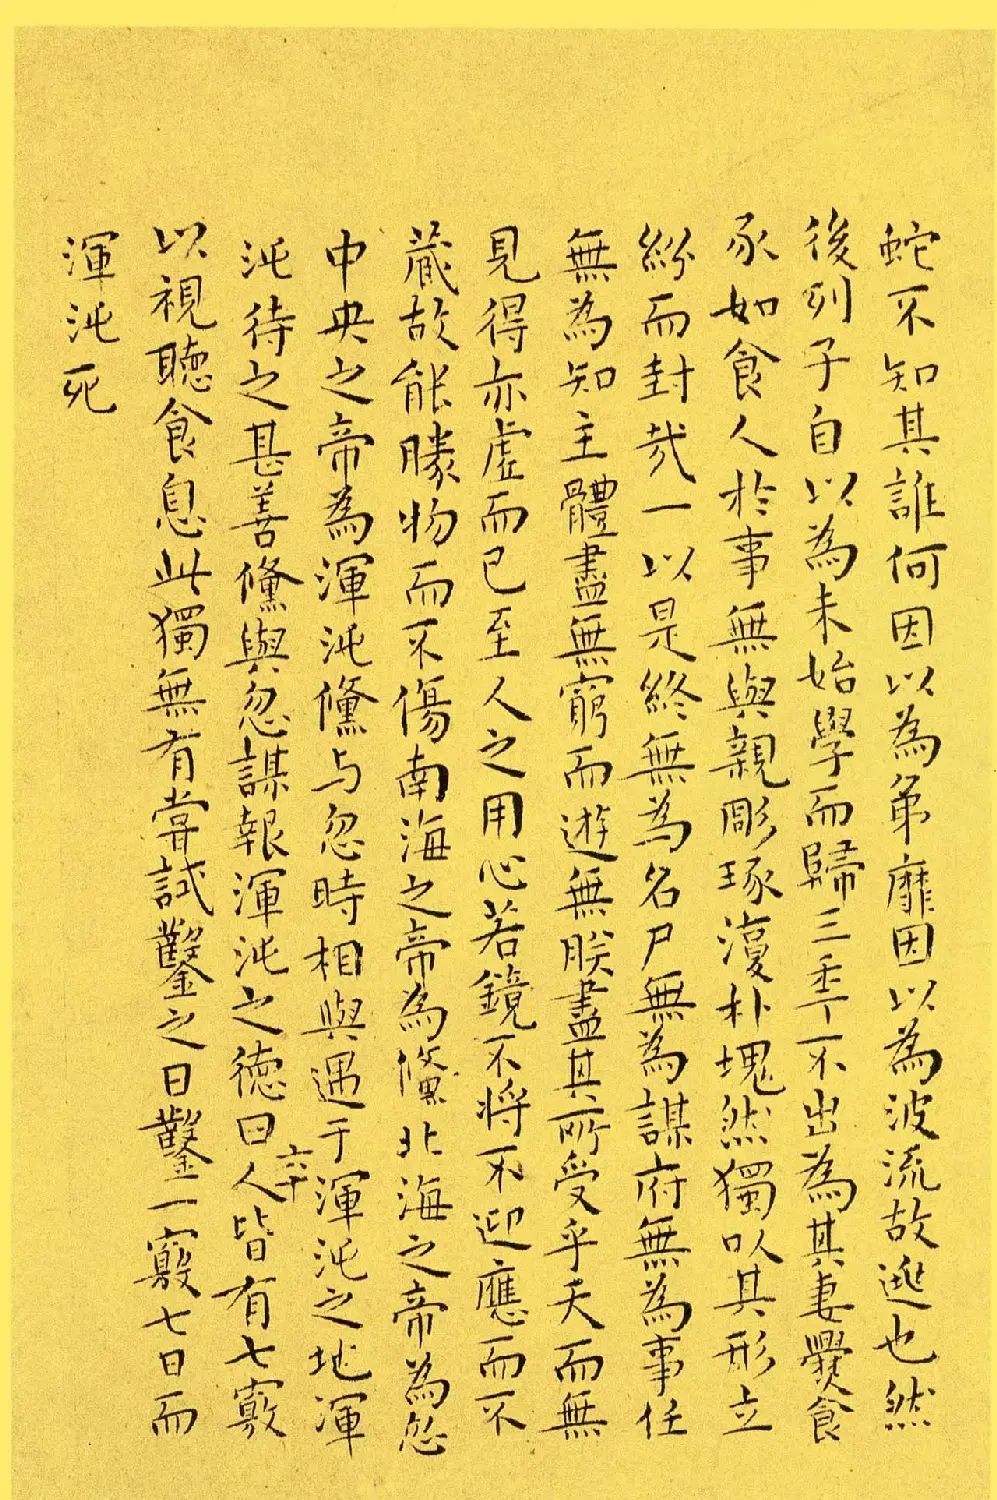 蛇不知其誰何因以為弟靡因以為波流故逃也然
後列子自以為未始學而歸三年不出為其妻爨食
豕如食人於事無與親彫琢澓朴塊然獨以其形立
紛而封哉一以是終無為名尸無為謀府無為事任
無為知主體盡無窮而遊無朕盡其所受乎天而無
見得亦虛而已至人之用心若鏡不將不迎應而不
藏故能勝物而不傷南海之帝為儵北海之帝為忽
中央之帝為渾沌儵与忽時相與遇于渾沌之地渾
沌待之甚善儵與忽謀報渾沌之德曰人皆有七竅
以視聽食息此獨無有嘗試鑿之日鑿一竅七日而
渾沌死